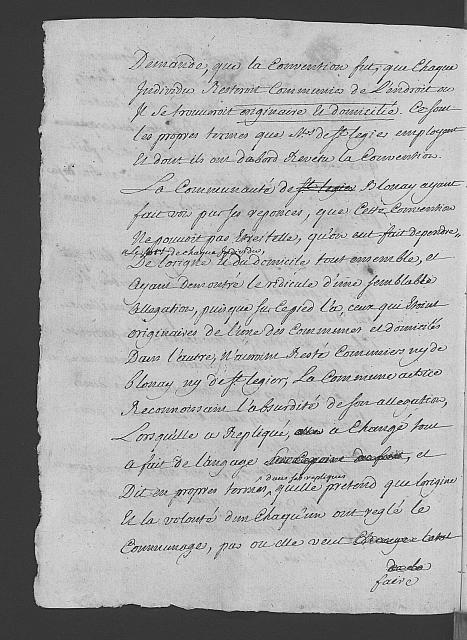 Demande, que la Convention fut, que Chaque
Individu Resteroit Communier de L'endroit ou
Il Se trouvoit originaire et domicilié. Ce sont
les propres termes que Mrs de St legier employent
Et dont ils ont dabord Revetu la Convention.
La Communauté de St legier Blonay ayant
fait voir par ses reponces, que Cette Convention
Ne pouvoit pas Etre telle, qu'on eut fait dependre
le sort de chaque Individu
De Lorigine et du domicile tout ensemble, et
Ayant demontré le ridicule d'une semblable
Allegation, puisque sur le pied la, ceux qui Etoint
originaires de l'une des Communes et domiciliés
Dans l'autre, N'auroint Resté Communiers ny de
Blonay ny de St legier, La Commune actrice
Reconnoissant l'absurdité de son allegation,
Lorsqu'elle a Repliqué, a Changé tout
a fait de langage et
dans ses repliques
Dit en propres termes, qu'elle pretend que Lorigine
Et la volonté d'un Chaqu'un ont reglé le
Communage, pas ou elle veut
faire